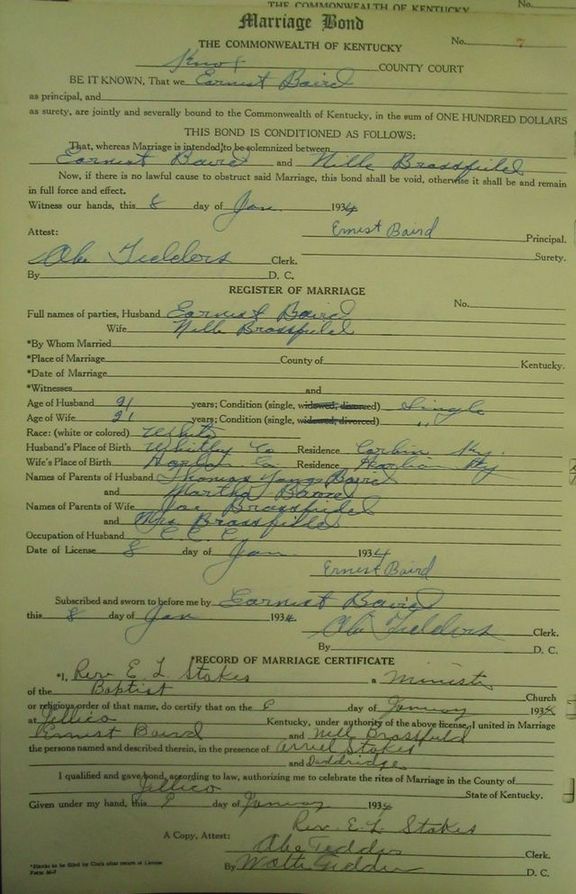 THE COMMONWEALTH OF KENTUCKY No.
Marriage Bond
THE COMMONWEALTH OF KENTUCKY No. 7
Knox COUNTY COURT
BE IT KNOWN, That we Earnest Baird
as principal, and
as surety, are jointly and severally bound to the Commonwealth of Kentucky, in the sum of ONE HUNDRED DOLLARS
THIS BOND IS CONDITIONED AS FOLLOWS:
That, whereas Marriage is intended to be solemnized between
Earnest Baird and Nille Brassfield
Now, if there is no lawful cause to obstruct said Marriage, this bond shall be void, otherwise it shall be and remain
in full force and effect.
Witness our hands, this 8 day of Jan 1934
Ernest Baird Principal.
Attest:
Abe Tedders Clerk. Surety.
By D. C.
REGISTER OF MARRIAGE
No.
Full names of parties, Husband Earnest Baird
Wife Nille Brassfield
*By Whom Married
*Place of Marriage County of Kentucky.
*Date of Marriage
*Witnesses and
Age of Husband 21 years; Condition (single, widowed, divorced) Single
Age of Wife 21 years; Condition (single, widowed, divorced) "
Race: (white or colored) White
Husband's Place of Birth Whitley Co Residence Corbin Ky.
Wife's Place of Birth Harlan Co Residence Harlan Ky
Names of Parents of Husband Thomas Baird
and Martha Baird
Names of Parents of Wife Joe Brassfield
and Mrs Brassfield
Occupation of Husband C C C
Date of License 8 day of Jan 1934
Ernest Baird
Subscribed and sworn to before me by Earnest Baird
this 8 day of Jan 1934
Abe Tedders Clerk.
By D. C.
*RECORD OF MARRIAGE CERTIFICATE
*I, Rev. E L Stakes a Minister
of the Baptist Church
or religious order of that name, do certify that on the 8 day of January 1934
at Jellico Kentucky, under authority of the above license, I united in Marriage
Ernest Baird and Nell Brassfield
the persons named and described therein, in the presence of Stakes
and
I qualified and gave bond, according to law, authorizing me to celebrate the rites of Marriage in the County of
Jellico State of Kentucky.
Given under my hand, this 8 day of January 1934
Rev. E. L. Stakes
A Copy, Attest: Abe Tedders Clerk.
By D. C.
*Blanks to be filled by Clerk after return of License